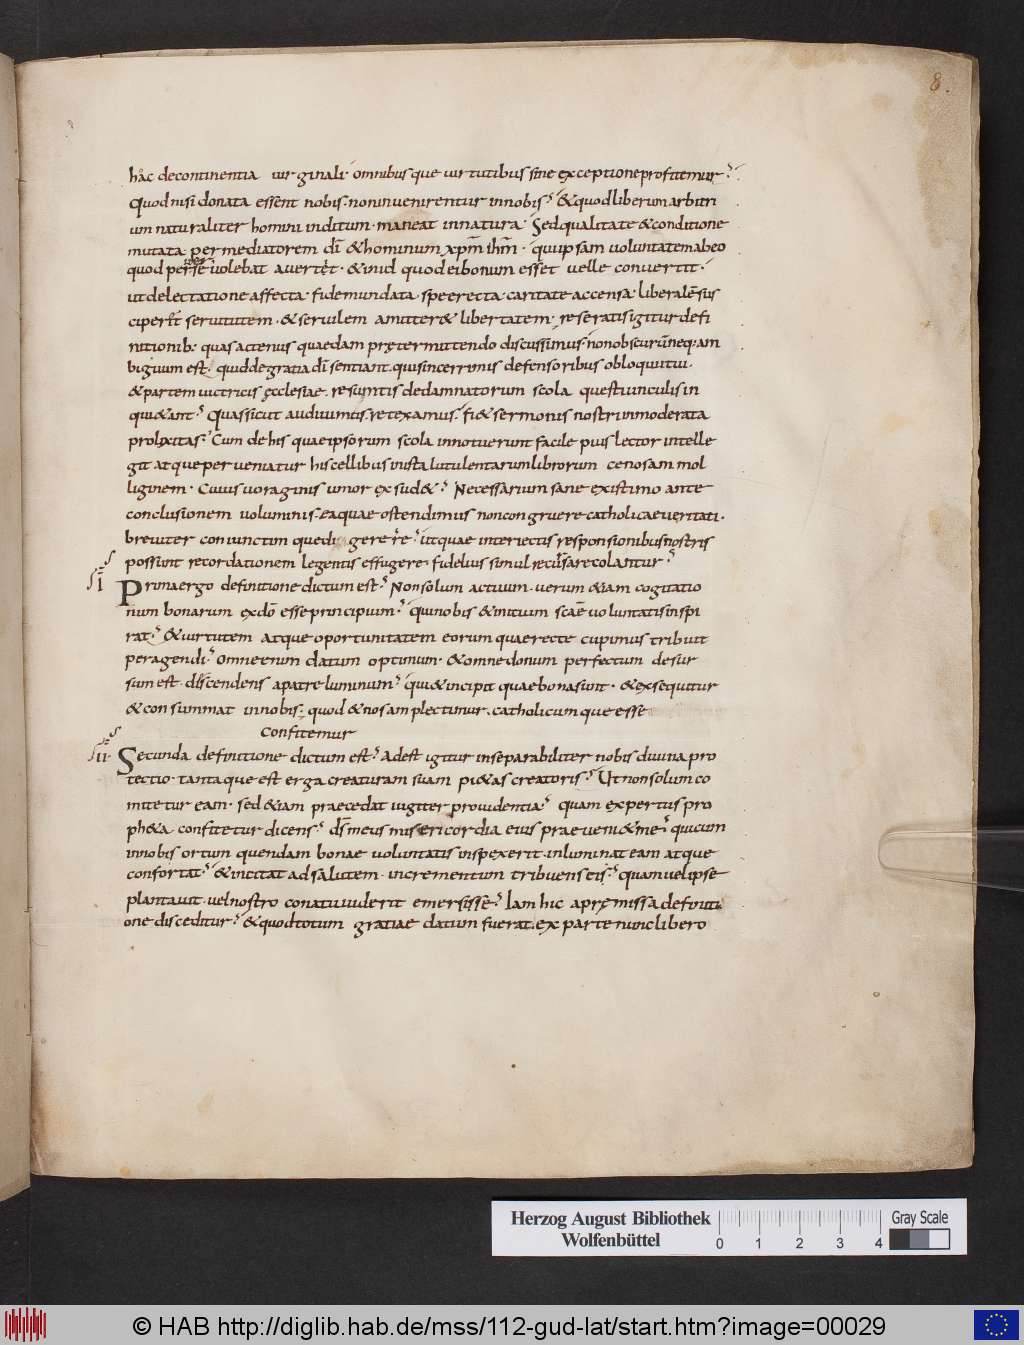 8.
hac de continentia virginali omnibusque virtutibus sine exceptione profitemur.
Quod nisi donata essent nobis. non invenirentur in nobis. & quod liberum arbitri
um naturaliter homini inditum. maneat in natura. Sed qualitate & conditione
mutata per mediatorem dī & hominum xpm ihm. qui ipsam voluntatem ab eo
quod volebat avertet. & in id quod ei bonum esset velle convertit.
ut delectatione affecta. fide mundata. spe erecta. caritate accensa. liberalē sus
ciper& servitutem. & servilem amitter& libertatem. reseratis igitur defi
nitionib: quas actenus quaedam prętermittendo discussimus. non obscurū neq: am
biguum est. quid de gratia dī sentiant. qui sincerrimis defensoribus obloquuntur.
& partem victricis ęcclesiae. resumtis de damnatorum scola questiunculis in
qui&ant. Quas sicut audivimus. retexamus. fi& sermonis nostri inmoderata
prolixitas. Cum de his quae ipsorum scola innotuerunt facile pius lector intelle
git atque perveniatur his cellibus iuxta lutulentarum librorum cenosam mol
liginem. Cuius voraginis umor exsud&. Necessarium sane existimo ante
conclusionem voluminis. ea quae ostendimus non congruere catholicae veritati.
breviter coniunctimque digerere. ut quae interiectis responsionibus nostris
possunt recordationem legentis effugere. fidelius simul recursare colantur.
I Prima ergo definitione dictum est. Non solum actuum. verum &iam cogitatio
num bonarum ex dō esse principium. qui nobis & initium scāe voluntatis inspi
rat. & virtutem atque oportunitatem eorum quae recte cupimus tribuit
peragendi. Omne enim datum optimum. & omne donum perfectum desur
sum est. discendens a patre luminum. qui & incipit quae bona sunt. & exsequitur
& consummat in nobis. quod & nos amplectimur. catholicumque esse
confitemur
II. Secunda definitione dictum est. Adest igitur inseparabiliter nobis divina pro
tectio. tantaque est erga creaturam suam pi&as creatoris. Ut non solum co
mitetur eam. sed &iam praecedat iugiter providentia. quam expertus pro
ph&a confitetur dicens. ds meus misericordia eius praeveni& me. qui cum
in nobis ortum quendam bonae voluntatis inspexerit. inluminat eam atque
confortat. & incitat ad salutem. incrementum tribuens ei. quam vel ipse
plantavit. vel nostro conatu viderit emersisse. Iam hic a pręmissa definiti
one disceditur. & quod totum gratiae datum fuerat. ex parte nunc libero
Herzog August Bibliothek
Wolfenbüttel
0 1 2 3 4
Gray Scale
© HAB http://diglib.hab.de/mss/112-gud-lat/start.htm?image=00029